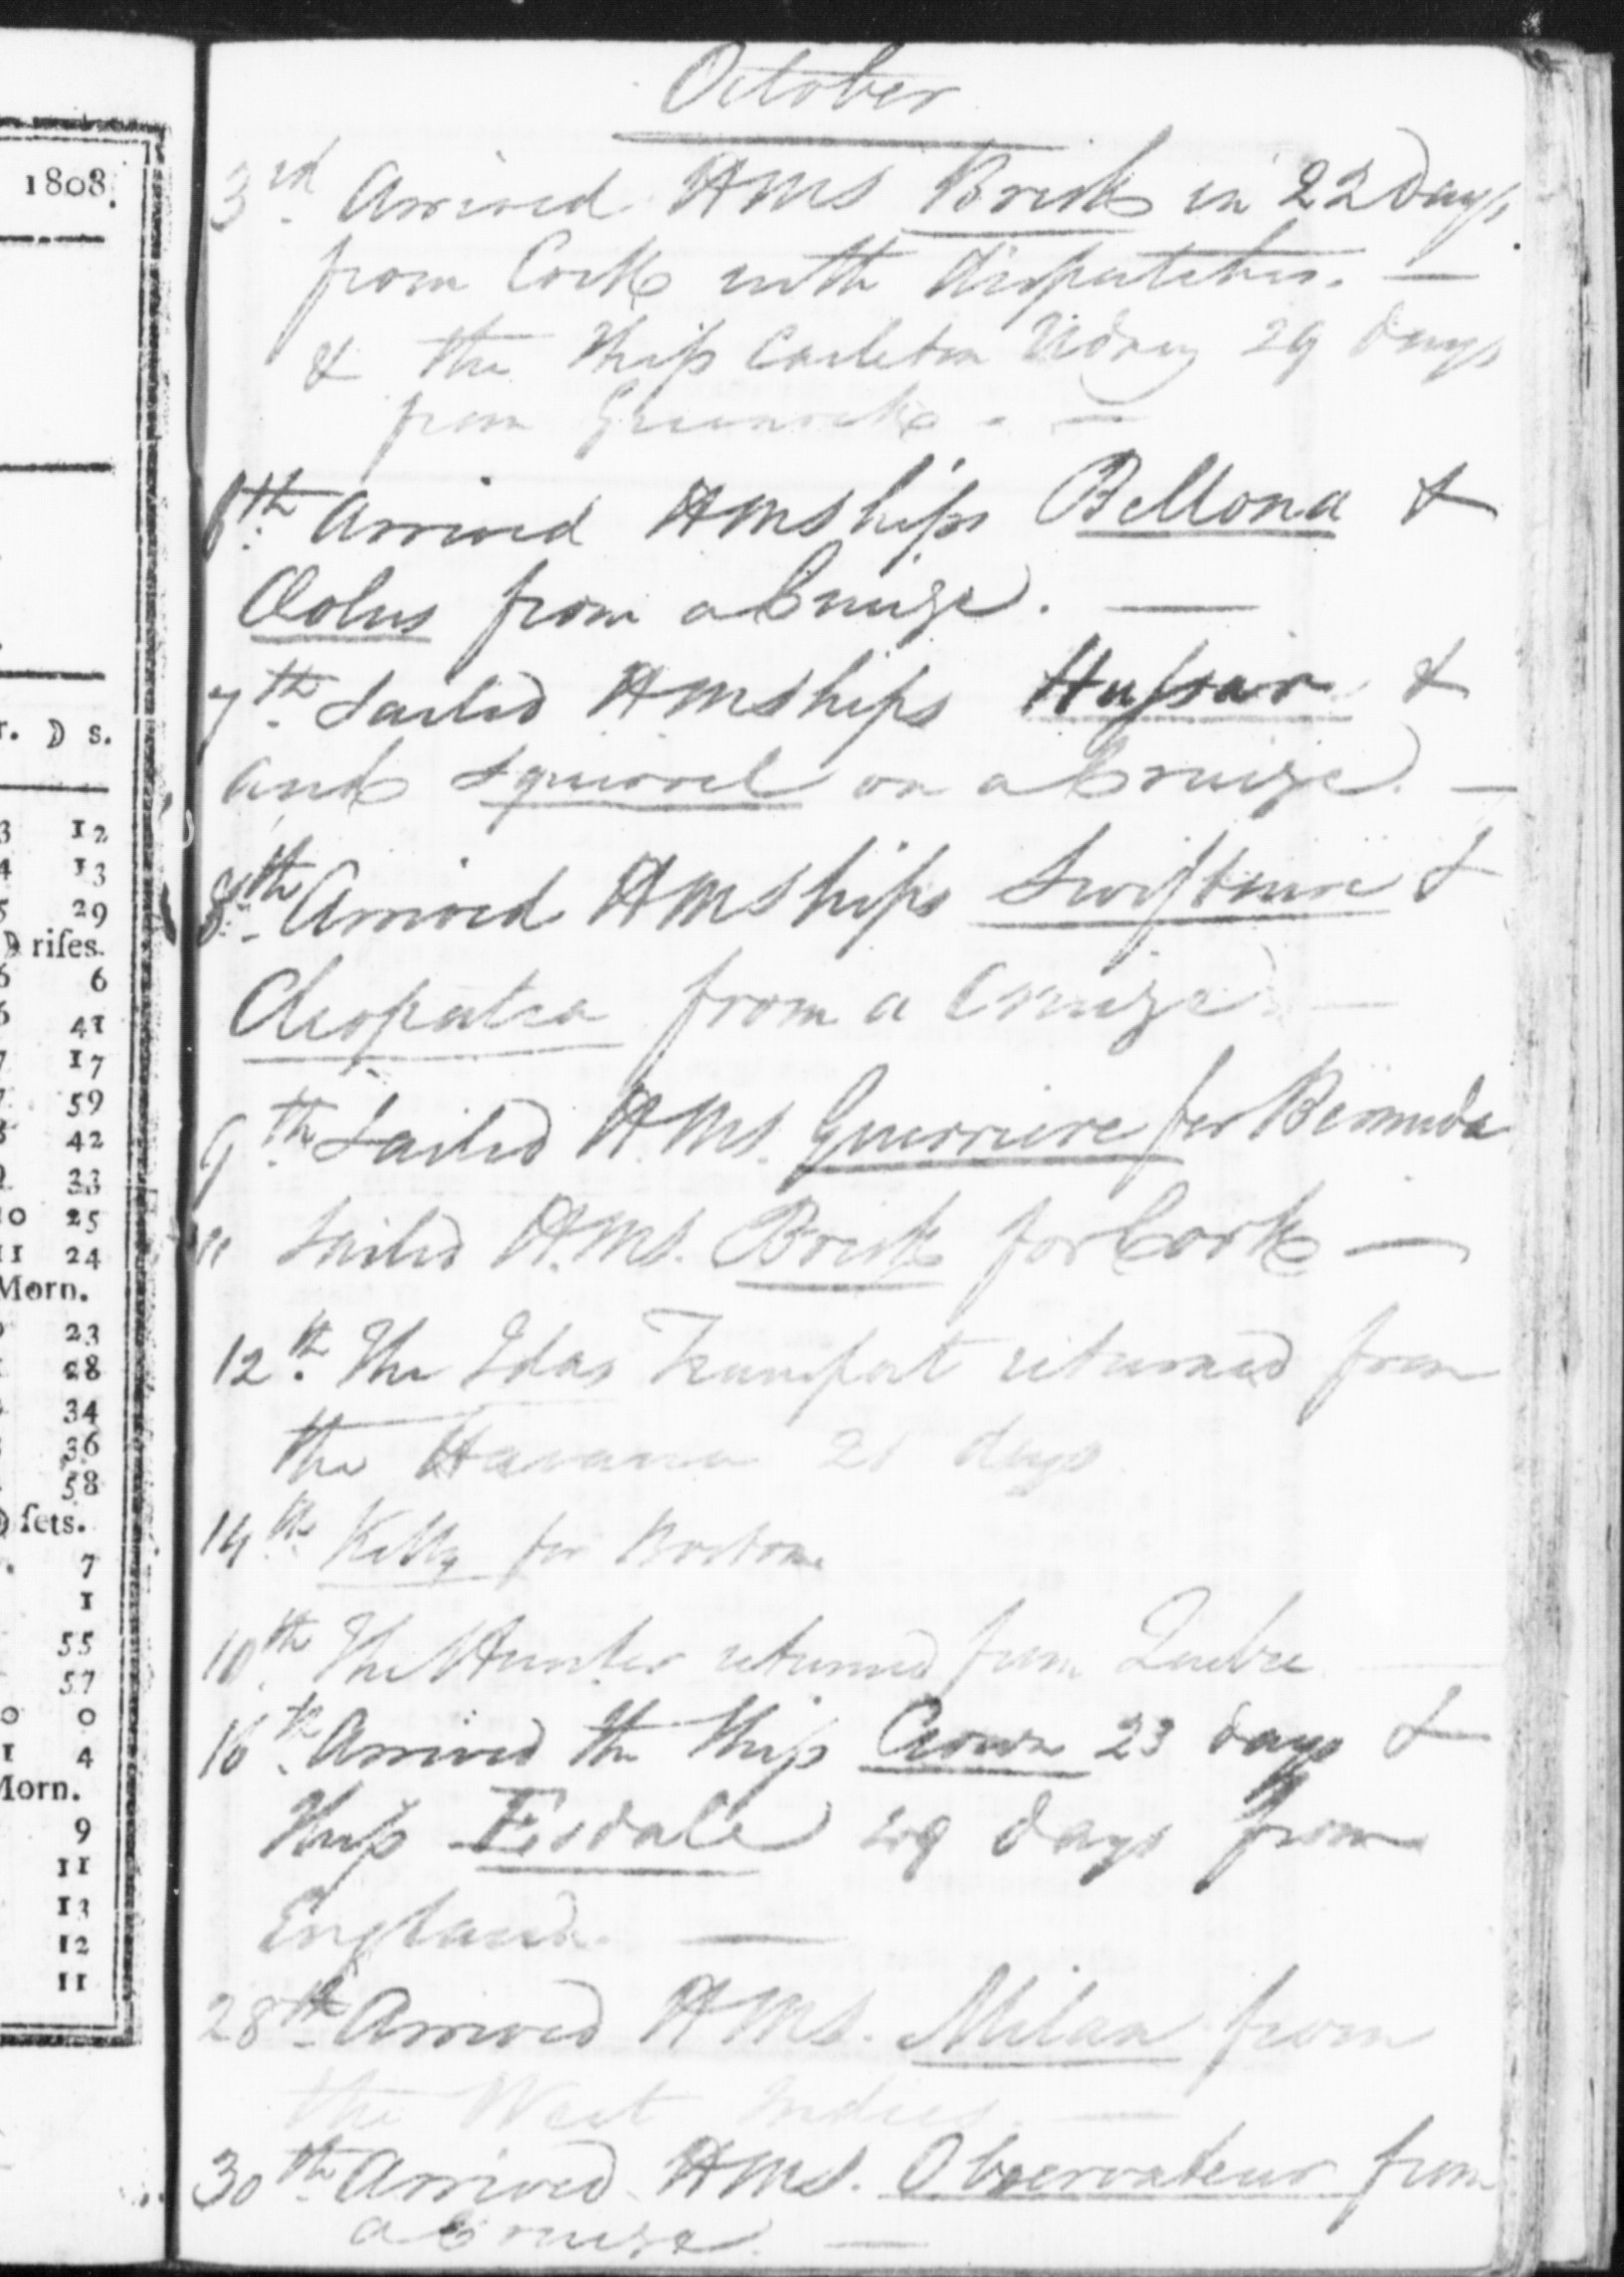 1808.
r. ☽ s.
3 12
4 13
5 29
☽ riſes.
6 6
6 41
7 17
7 59
8 42
33
10 25
11 24
Morn.
23
28
34
36
58
☽ ſets.
7
1
55
57
0 0
1 4
Morn.
9
11
13
12
11
October
3rd. Arrived HMS Brisk in 22 Days
from Cork with dispatches. —
& the Ship Carleton 29 days
from Greenock. —
6th. Arrived HMShips Bellona &
Æolus from a Cruize. —
7th. Sailed HMShips Hussar &
and Squirrel on a Cruize. —
8th. Arrived HMShips Swiftsure &
Cleopatra from a Cruize —
9th. Sailed H.MS. Guerriere for Bermuda
11 Sailed H.MS. Brisk for Cork —
12th. The Idas Transport returned from
the Havanna 21 days
14th. Kitty for Boston
10th. The Hunter returned from Quebec
16th. Arrived the Ship Crown 23 days &
Ship Esdale 29 days from
England. —
28th. Arrived HMS. Milan from
the West Indies. —
30th. Arrived HMS. Observateur from
a Cruize. —